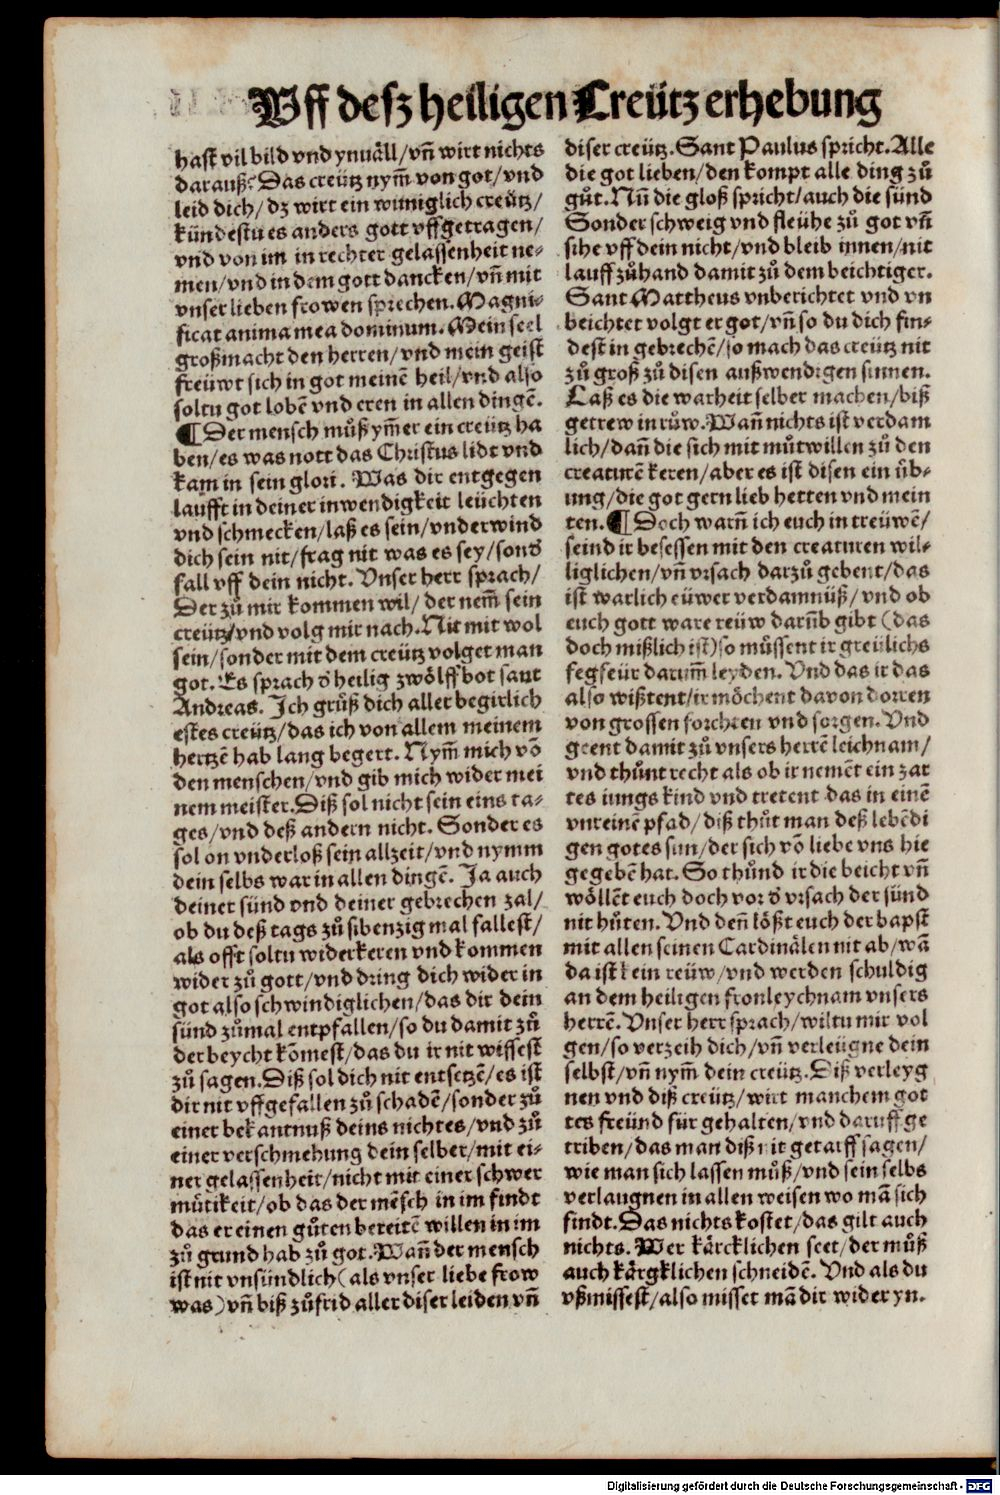 Uff desz heiligen Creütz erhebung
hast vil bild vnd ynuäll/vñ wirt nichts
darauß. Das creütz nym̃ von got/vnd
leid dich/dz wirt ein wuniglich creütz/
kündestu es anders gott vffgetragen/
vnd von im in rechter gelassenheit ne-
men/vnd in dem gott dancken/vñ mit
vnser lieben frowen sprechen. Magni-
ficat anima mea dominum. Mein seel
großmacht den herren/vnd mein geist
freüwt sich in got meinẽ heil/vnd also
soltu got lobẽ vnd eren in allen dingẽ.
¶ Der mensch můß ym̃er ein creütz ha
ben/es was nott das Christus lidt vnd
kam in sein glori. Was dir entgegen
laufft in deiner inwendigkeit leüchten
vnd schmecken/laß es sein/vnderwind
dich sein nit/frag nit was es sey/sond̕
fall vff dein nicht. Vnser herr sprach/
Der zů mir kommen wil/der nem̃ sein
creütz/vnd volg mir nach. Nit mit wol
sein/sonder mit dem creütz volget man
got. Es sprach d̕ heilig zwölff bot sant
Andreas. Ich grůß dich aller begirlich
estes creütz/das ich von allem meinem
hertzẽ hab lang begert. Nym̃ mich võ
den menschen/vnd gib mich wider mei
nem meister. Diß sol nicht sein eins ta-
ges/vnd deß andern nicht. Sonder es
sol on vnderloß sein allzeit/vnd nymm
dein selbs war in allen dingẽ. Ja auch
deiner sünd vnd deiner gebrechen zal/
ob du deß tags zů sibenzig mal fallest/
als offt soltu widerkeren vnd kommen
wider zů gott/vnd dring dich wider in
got also schwindiglichen/das dir dein
sünd zůmal entpfallen/so du damit zů
der beycht kõmest/das du ir nit wissest
zů sagen. Diß sol dich nit entsetzẽ/es ist
dir nit vffgefallen zů schadẽ/sonder zů
einer bekantnuß deins nichtes/vnd zů
einer verschmehung dein selber/mit ei-
ner gelassenheit/nicht mit einer schwer
můtikeit/ob das der mẽsch in im findt
das er einen gůten bereitẽ willen in im
zů grund hab zů got. Wañ der mensch
ist nit vnsündlich (als vnser liebe frow
was) vñ biß zůfrid aller diser leiden vñ
diser creütz. Sant Paulus spricht. Alle
die got lieben/den kompt alle ding zů
gůt. Nũ die gloß spricht/auch die sünd
Sonder schweig vnd fleühe zů got vñ
sihe vff dein nicht/vnd bleib innen/nit
lauff zůhand damit zů dem beichtiger.
Sant Mattheus vnberichtet vnd vn
beichtet volgt er got/vñ so du dich fin-
dest in gebrechẽ/so mach das creütz nit
zů groß zů disen außwendigen sinnen.
Laß es die warheit selber machen/biß
getrew in růw. Wañ nichts ist verdam
lich/dañ die sich mit můtwillen zů den
creaturẽ keren/aber es ist disen ein üb-
ung/die got gern lieb hetten vnd mein
ten. ¶ Doch warñ ich euch in treüwẽ/
seind ir besessen mit den creaturen wil-
liglichen/vñ vrsach darzů gebent/das
ist warlich eüwer verdamnüß/vnd ob
euch gott ware reüw darũb gibt (das
doch mißlich ist) so můssent ir greülichs
fegfeür darum̃ leyden. Vnd das ir das
also wißtent/ir möchent davon dorren
von grossen forchten vnd sorgen. Vnd
geent damit zů vnsers herrẽ leichnam/
vnd thůnt recht als ob ir nemẽt ein zar
tes iungs kind vnd tretent das in einẽ
vnreinẽ pfad/diß thůt man deß lebẽdi
gen gotes sun/der sich võ liebe vns hie
gegebẽ hat. So thůnd ir die beicht vñ
wöllẽt euch doch vor d̕ vrsach der sünd
nit hůten. Vnd deñ lößt euch der bapst
mit allen seinen Cardinälen nit ab/wã
da ist kein reüw/vnd werden schuldig
an dem heiligen fronleychnam vnsers
herrẽ. Vnser herr sprach/wiltu mir vol
gen/so verzeih dich/vñ verleügne dein
selbst/vñ nym̃ dein creütz. Diß verleyg
nen vnd diß creütz/wirt manchem got
tes freünd für gehalten/vnd daruff ge
triben/das man diß nit getarff sagen/
wie man sich lassen můß/vnd sein selbs
verlaugnen in allen weisen wo mã sich
findt. Das nichts kostet/das gilt auch
nichts. Wer kärcklichen seet/der můß
auch kärgklichen schneidẽ. Vnd als du
vßmissest/also misset mã dir wider yn.
Digitalisierung gefördert durch die Deutsche Forschungsgemeinschaft - DFG